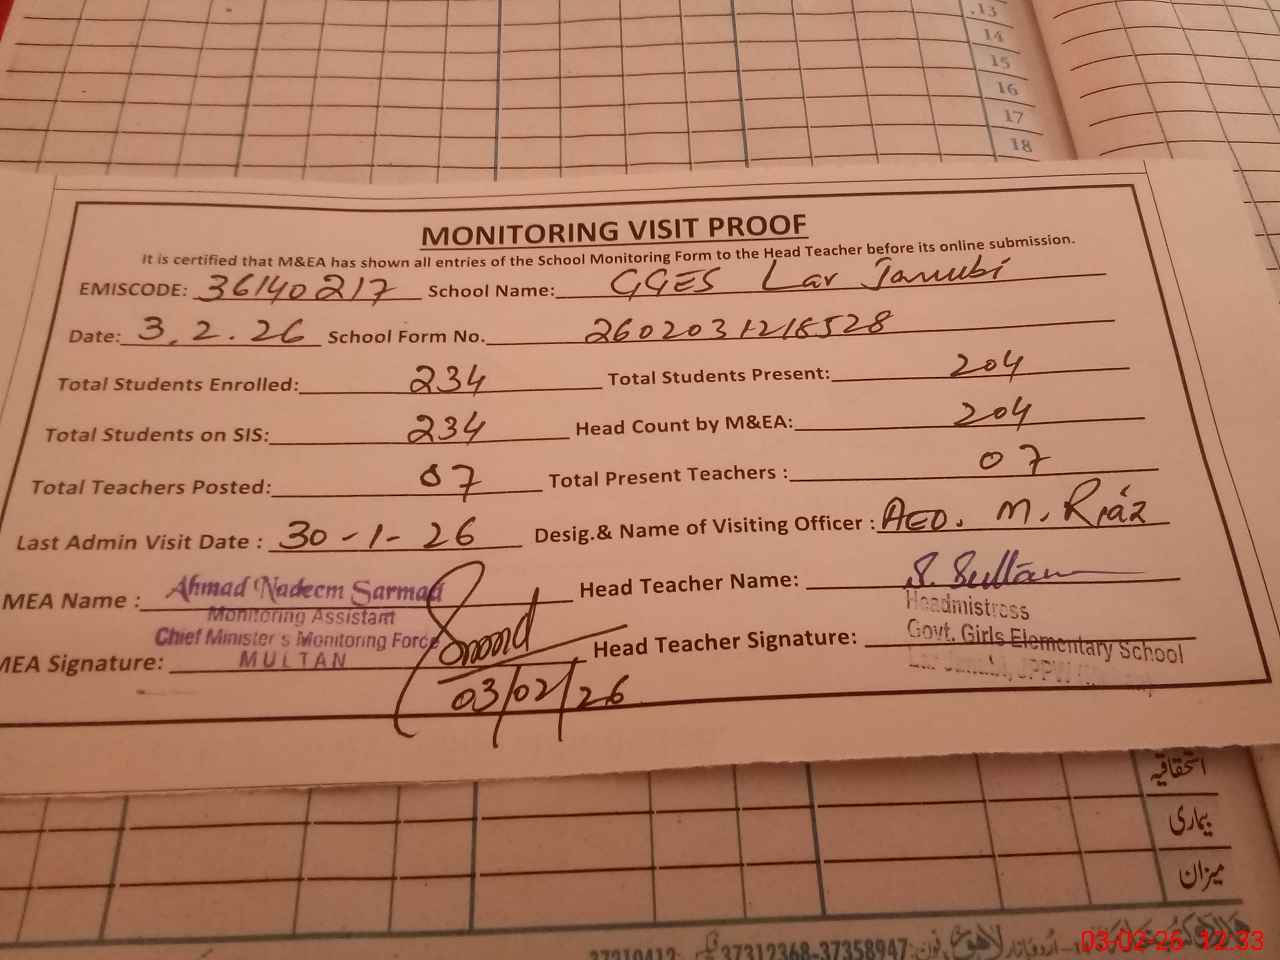 .13
14
15
16
17
18
MONITORING VISIT PROOF
It is certified that M&EA has shown all entries of the School Monitoring Form to the Head Teacher before its online submission.
EMISCODE: 36140217 School Name: GGES Lar Janubi
Date: 3.2.26 School Form No. 2602031218528
Total Students Enrolled: 234 Total Students Present: 204
Total Students on SIS: 234 Head Count by M&EA: 204
Total Teachers Posted: 07 Total Present Teachers : 07
Last Admin Visit Date : 30-1-26 Desig.& Name of Visiting Officer : AEO. M. Riaz
MEA Name : Ahmad Nadeem Sarmad Head Teacher Name: S. Sultan
Monitoring Assistant
Headmistress
Chief Minister's Monitoring Force
Govt. Girls Elementary School
MEA Signature: MULTAN Head Teacher Signature:
Lar Janubi,
03/02/26
استحقاقیہ
بیماری
میزان
37312368-37358947
لاہور
فون:
03-02-26 12:33